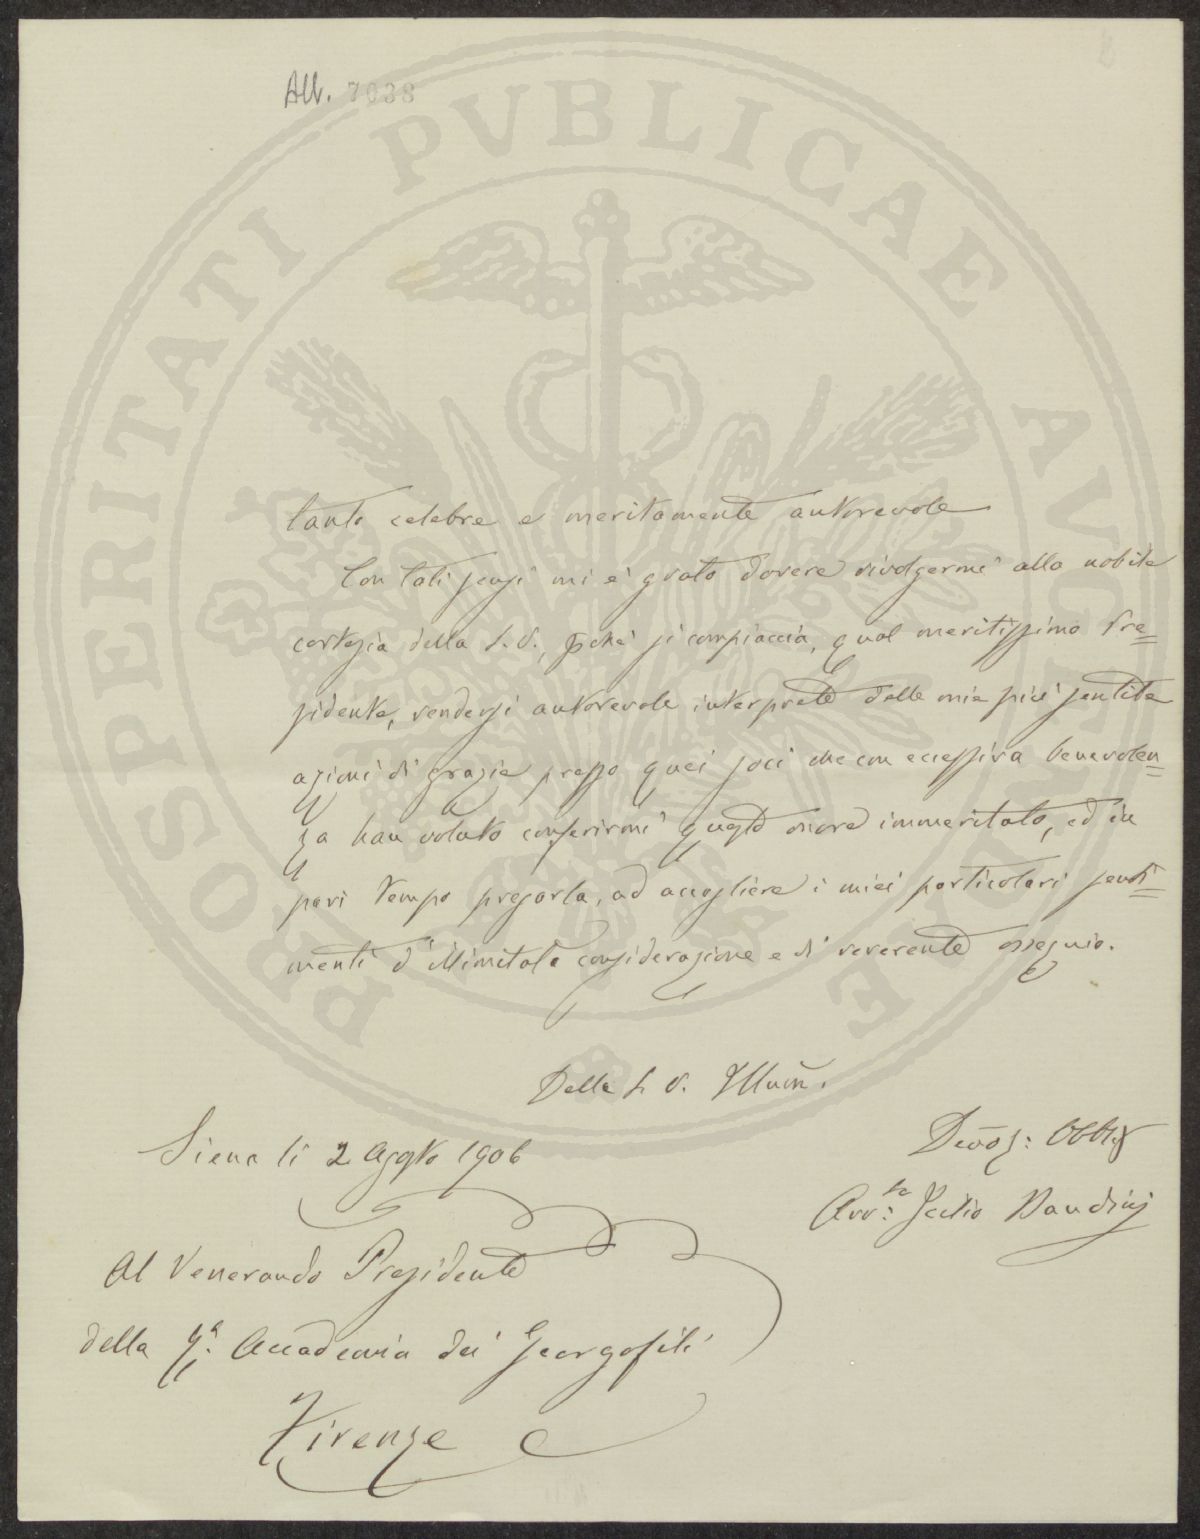 All. 7038
PROSPERITATI PVBLICAE AVGENDAE
tanto celebre e meritamente autorevole
Con tali sensi mi è grato dovere rivolgermi alla nobile
cortesia della S. V., pchè si compiaccia, qual meritissimo Pre=
sidente, rendersi autorevole interprete delle mie più sentite
azioni di grazie presso quei soci che con eccessiva benevolen=
za han voluto conferirmi questo onore immeritato, ed in
pari tempo pregarla, ad accogliere i miei particolari senti=
menti d'illimitata considerazione e di reverente ossequio.
Della S. V. Illum̃.
Siena li 2 Agosto 1906
Devõs: Obblg
Avv:to Bandini
Al Venerando Presidente
della Ra. Accademia dei Georgofili
Firenze